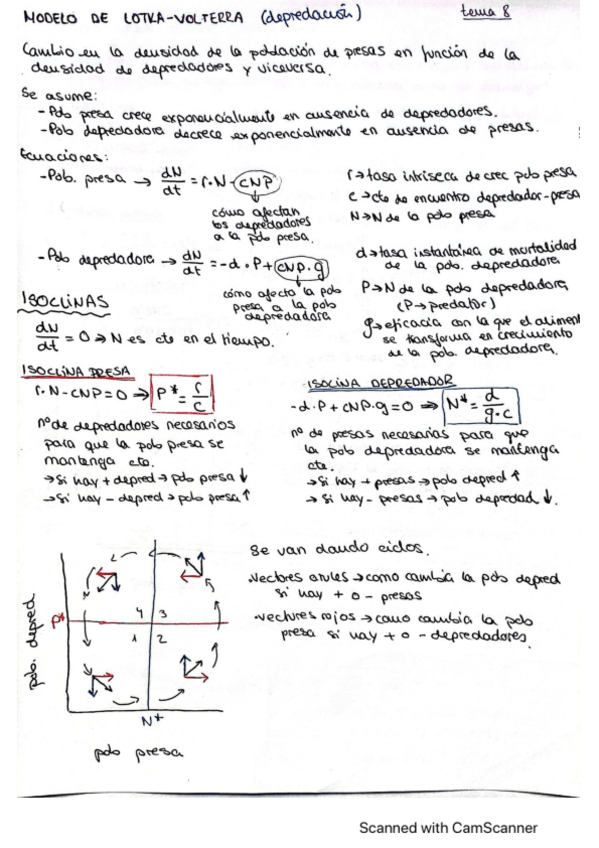 MODELO DE LOTKA-VOLTERRA (depredación) tema 8
Cambio en la densidad de la población de presas en función de la
densidad de depredadores y viceversa.
Se asume:
- Pob presa crece exponencialmente en ausencia de depredadores.
- Pob depredadora decrece exponencialmente en ausencia de presas.
Ecuaciones:
- Pob. presa → dN/dt = r·N - cNP
cómo afectan
los depredadores
a la pob presa.
r → tasa intriseca de crec pob presa
c → cte de encuentro depredador-presa
N → N de la pob presa
- Pob depredadora → dN/dt = -d·P + cNP·g
cómo afecta la pob
presa a la pob
depredadora
d → tasa instantánea de mortalidad
de la pob. depredadora
P → N de la pob depredadora
(P → predator)
g → eficacia con la que el aliment
se transforma en crecimiento
de la pob. depredadora.
ISOCLINAS
dN/dt = 0 → N es cte en el tiempo.
ISOCLINA PRESA
r·N - cNP = 0 ⇒ P* = r/c
nº de depredadores necesarios
para que la pob presa se
mantenga cte.
→ Si hay + depred → pob presa ↓
→ Si hay - depred → pob presa ↑
ISOCLINA DEPREDADOR
-d·P + cNP·g = 0 ⇒ N* = d/g·c
nº de presas necesarias para que
la pob depredadora se mantenga
cte.
→ Si hay + presas → pob depred ↑
→ Si hay - presas → pob depredad ↓.
pob. depred
P*
4 3
1 2
N*
pob presa
Se van dando ciclos.
·Vectores azules → como cambia la pob depred
si hay + o - presas
·Vectores rojos → como cambia la pob
presa si hay + o - depredadores.
Scanned with CamScanner